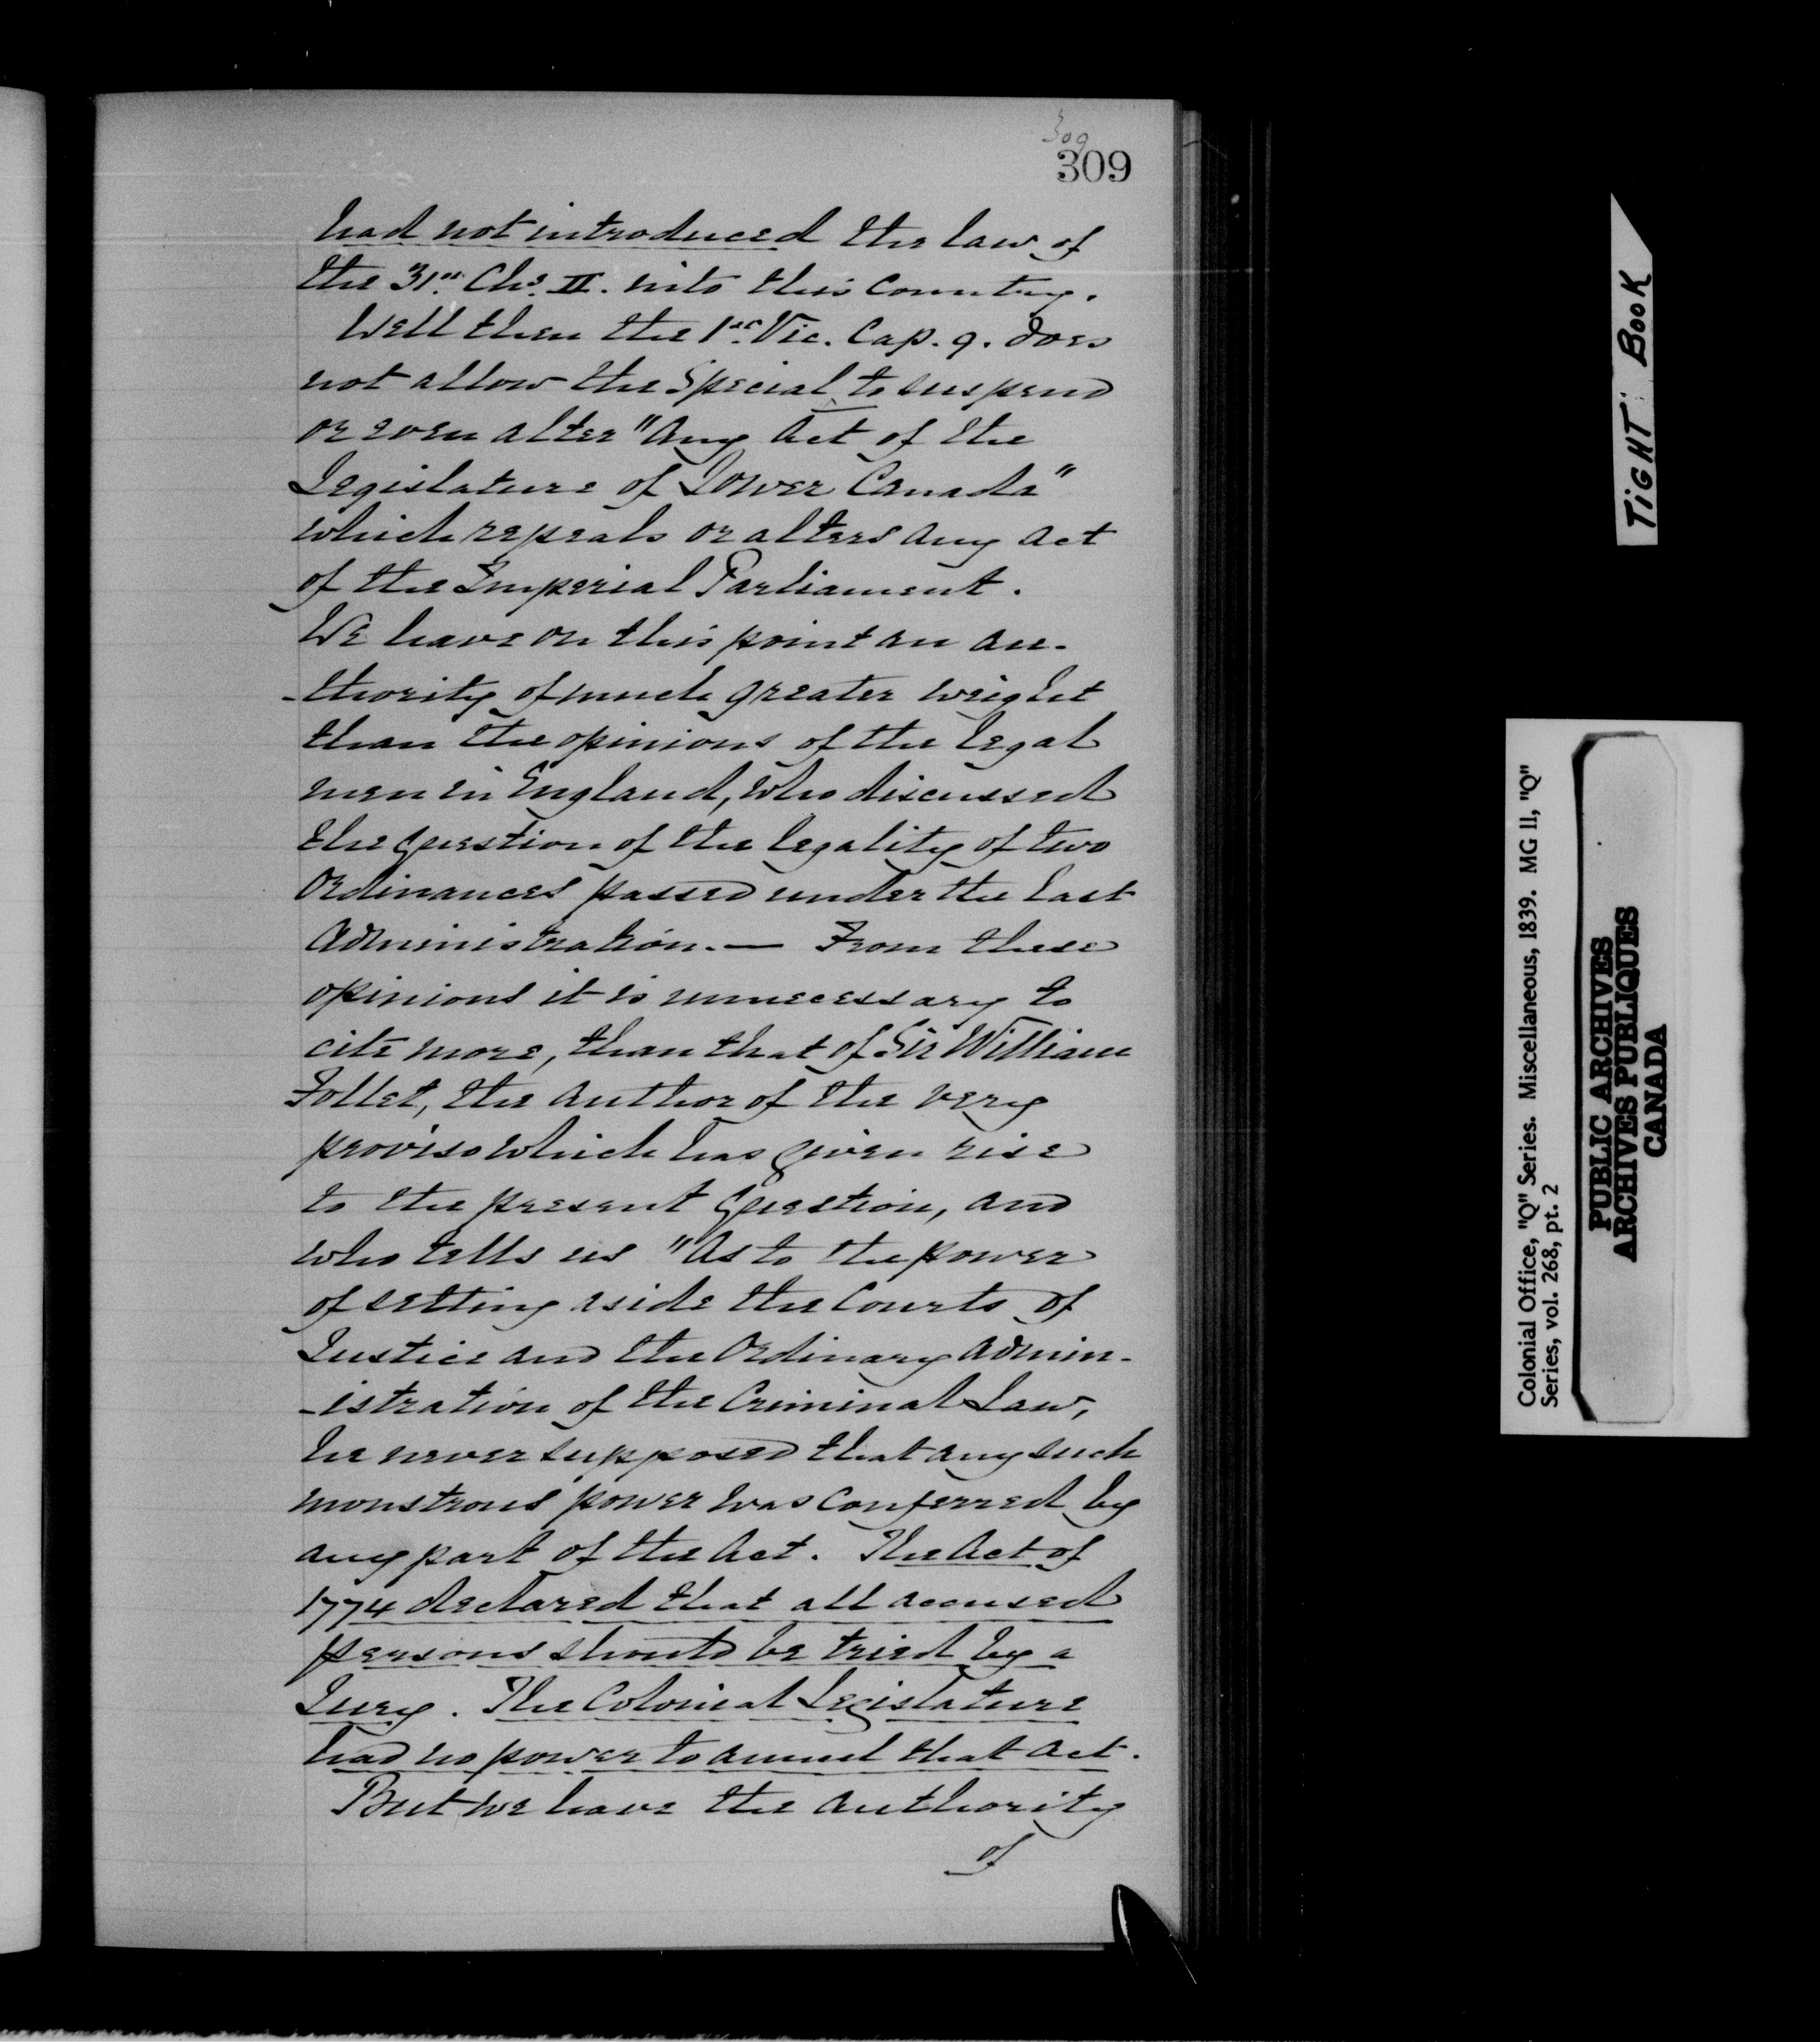 309
309
had not introduced the law of
the 31st Chs. II. into this Country.
Well then the 1st Vic. Cap. 9. does
not allow the Special to suspend
or even alter "Any Act of the
Legislature of Lower Canada"
which repeals or alters any act
of the Imperial Parliament.
We have on this point an au-
-thority of much greater weight
than the opinions of the legal
men in England, who discussed
the question of the legality of two
Ordinances passed under the last
Administration. — From these
opinions it is unnecessary to
cite more, than that of Sir William
Follet, the author of the very
proviso which has given rise
to the present question, and
who tells us "As to the power
of setting aside the Courts of
Justice and the Ordinary Admin-
-istration of the Criminal Law,
he never supposed that any such
monstrous power was conferred by
any part of the Act. The Act of
1774 declared that all accused
persons should be tried by a
Jury. The Colonial Legislature
had no power to annul that Act.
But we have the authority
of
TIGHT BOOK
Colonial Office, "Q" Series. Miscellaneous, 1839. MG 11, "Q"
Series, vol. 268, pt. 2
PUBLIC ARCHIVES
ARCHIVES PUBLIQUES
CANADA